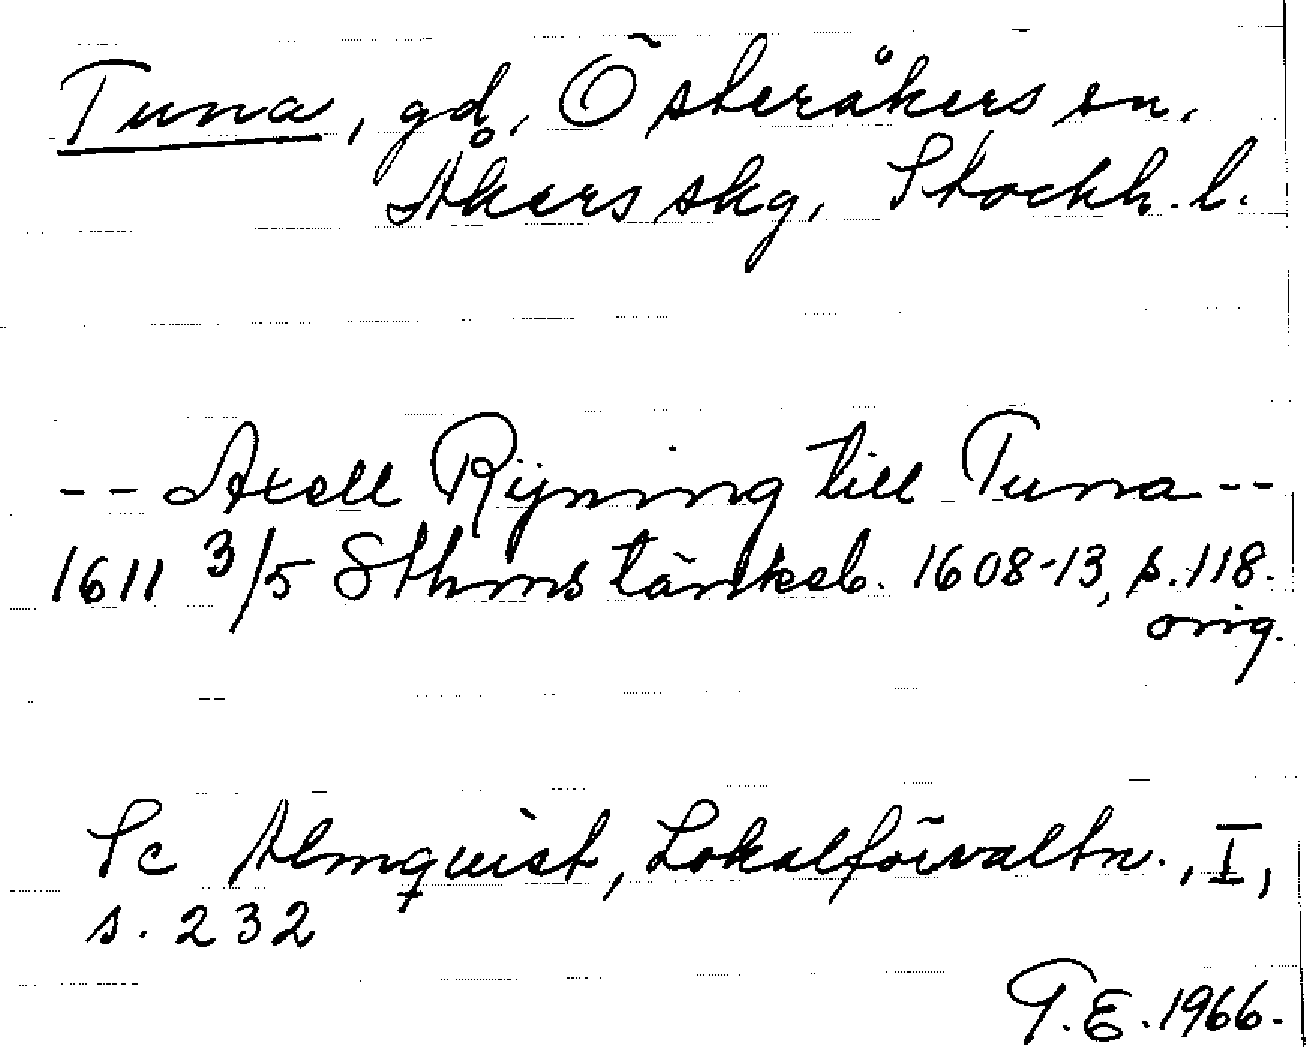 Tuna, gd, Österåkers sn,
Åkers skg, Stockh. l.
-- Axell Rijning till Tuna --
1611 3/5 Sthms tänkeb. 1608-13, s. 118.
orig.
Sc Almquist, Lokalförvaltn., I,
s. 232
T.E. 1966.